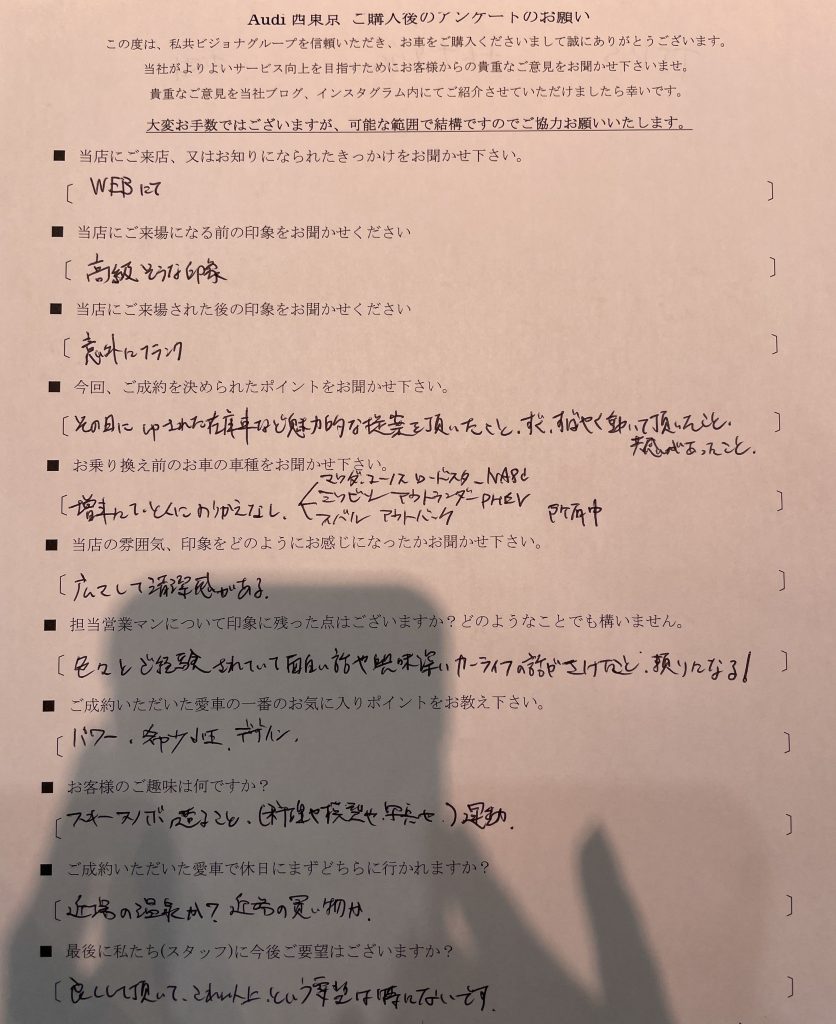 Audi 西東京 ご購入後のアンケートのお願い
この度は、私共ビジョナグループを信頼いただき、お車をご購入くださいまして誠にありがとうございます。
当社がよりよいサービス向上を目指すためにお客様からの貴重なご意見をお聞かせ下さいませ。
貴重なご意見を当社ブログ、インスタグラム内にてご紹介させていただけましたら幸いです。
大変お手数ではございますが、可能な範囲で結構ですのでご協力お願いいたします。
■ 当店にご来店、又はお知りになられたきっかけをお聞かせ下さい。
[ WEBにて ]
■ 当店にご来場になる前の印象をお聞かせください
[ 高級そうな印象 ]
■ 当店にご来場された後の印象をお聞かせください
[ 意外にフランク ]
■ 今回、ご成約を決められたポイントをお聞かせ下さい。
[ その日に された在庫車など魅力的な提案を頂いたこと、すばやく動いて頂いたこと、 ]
があったこと。
■ お乗り換え前のお車の車種をお聞かせ下さい。
マツダ ユーノス ロードスター NA8C
[ 増車にて、とくにのりかえなし。 ミツビシ アウトランダーPHEV ]
スバル アウトバック 所有中
■ 当店の雰囲気、印象をどのようにお感じになったかお聞かせ下さい。
[ 広くて清潔感がある。 ]
■ 担当営業マンについて印象に残った点はございますか？どのようなことでも構いません。
[ 色々とご経験されていて面白い話や興味深いカーライフの話がきけたこと、頼りになる! ]
■ ご成約いただいた愛車の一番のお気に入りポイントをお教え下さい。
[ パワー、デザイン。 ]
■ お客様のご趣味は何ですか？
[ スキー スノボ 造ること、(料理や模型や写真や) 運動。 ]
■ ご成約いただいた愛車で休日にまずどちらに行かれますか？
[ 近場の温泉か? 近場の買い物か。 ]
■ 最後に私たち(スタッフ)に今後ご要望はございますか？
[ 良くして頂いて、これ以上、という要望は特にないです。 ]